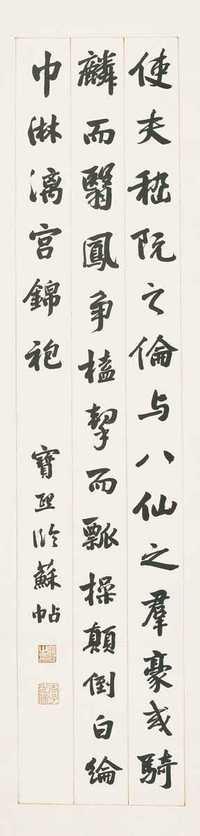 使夫嵇阮之倫与八仙之羣豪或騎
麟而翳鳳争榼挈而瓢操顛倒白綸
巾淋漓宮錦袍
寶熙臨蘇帖